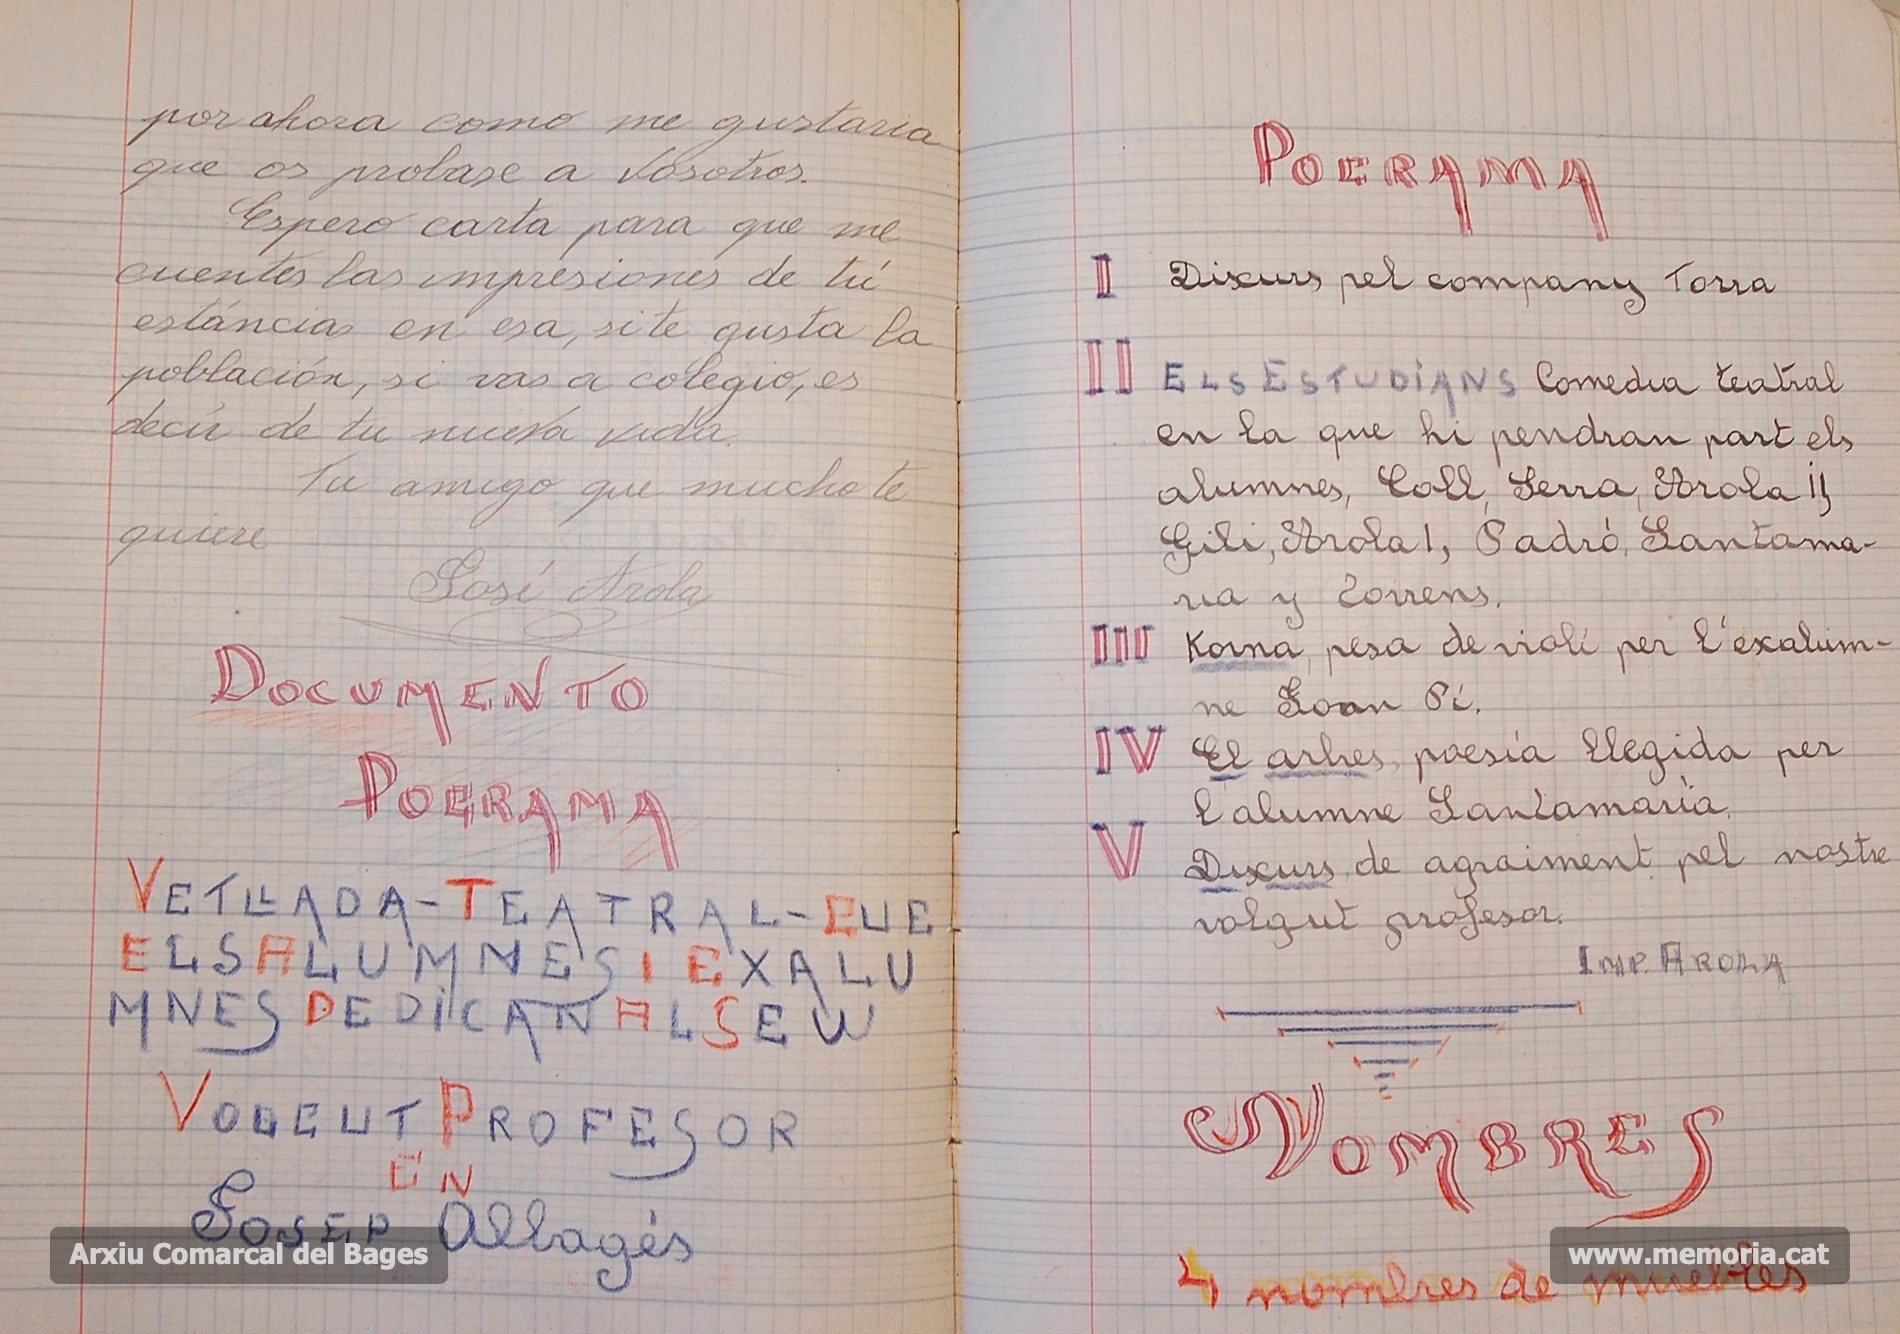 por ahora como me gustaria
que os probase a vosotros.
Espero carta para que me
cuentes las impresiones de tú
estáncias en esa, si te gusta la
población, si vas a colegio, es
decir de tu nueva vida.
Tu amigo que mucho te
quiere
José Arola
DOCUMENTO
POGRAMA
VETLLADA-TEATRAL-QUE
ELS ALUMNES I EXALU
MNES DEDICAN AL SEU
VOLGUT PROFESOR
EN
JOSEP Allagés
Arxiu Comarcal del Bages
POGRAMA
I Dixurs pel company Torra
II ELS ESTUDIANS Comedia teatral
en la que hi pendran part els
alumnes, Coll, Serra, Arola II,
Gili, Arola I, Padró, Santama-
ria y Torrens.
III Korna, pesa de violí per l'exalum-
ne Joan Pi.
IV El arbres, poesía llegida per
l'alumne Santamaría.
V Dixurs de agraiment pel nostre
volgut profesor.
IMP. AROLA
NOMBRES
4 nombres de muebles
www.memoria.cat